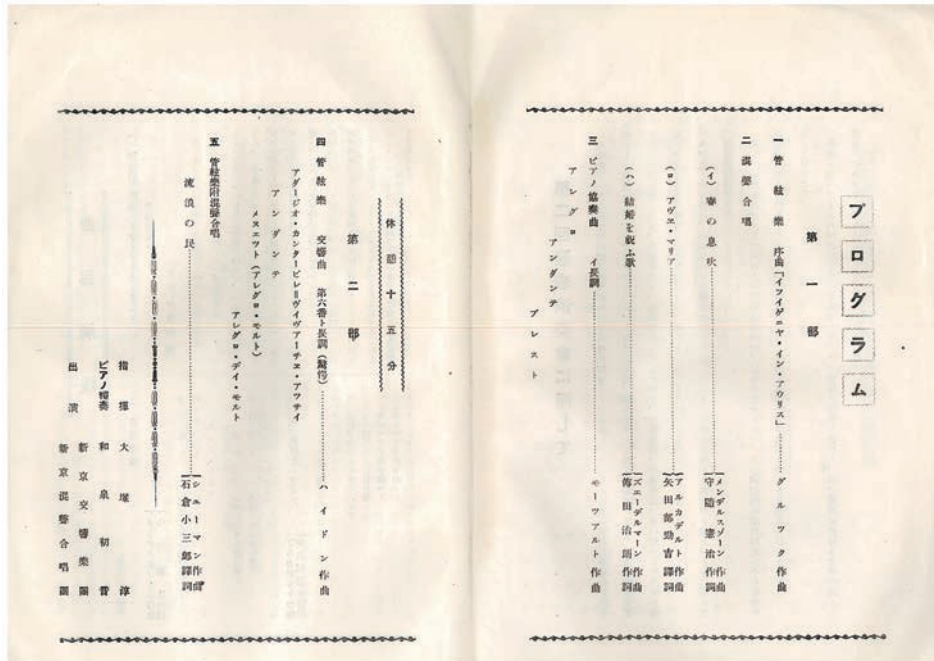 プログラム
第一部
一 管絃樂 序曲「イフイゲニヤ・イン・アウリス」……グルツク作曲
二 混聲合唱
(イ) 春の息吹……メンデルスゾーン作曲
守隨憲治作詞
(ロ) アヴエ・マリア……アルカデルト作曲
矢田部勁吉譯詞
(ハ) 結婚を祝ふ歌……ズエーデルマーン作曲
傳田治朗作詞
三 ピアノ協奏曲 イ長調……モーツアルト作曲
アレグロ
アンダンテ
プレスト
休憩十五分
第二部
四 管絃樂 交響曲 第六番ト長調(驚愕)……ハイドン作曲
アダージオ・カンタービレ=ヴイヴアーチエ・アツサイ
アンダンテ
メヌエツト(アレグロ・モルト)
アレグロ・デイ・モルト
五 管絃樂附混聲合唱
流浪の民……シューマン作曲
石倉小三郎譯詞
指揮 大塚淳
ピアノ獨奏 和泉初音
出演 新京交響樂團
新京混聲合唱團